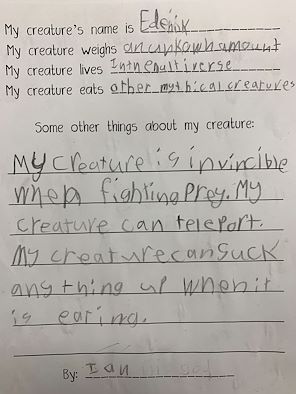 My creature's name is Edenik
My creature weighs an unkown amount
My creature lives Inthemultiverse
My creature eats other mythical creatures
Some other things about my creature:
My Creature is invincible
when fighting Prey. My
creature can teleport.
My creature can suck
any thing up when it
is earing.
By: Ian